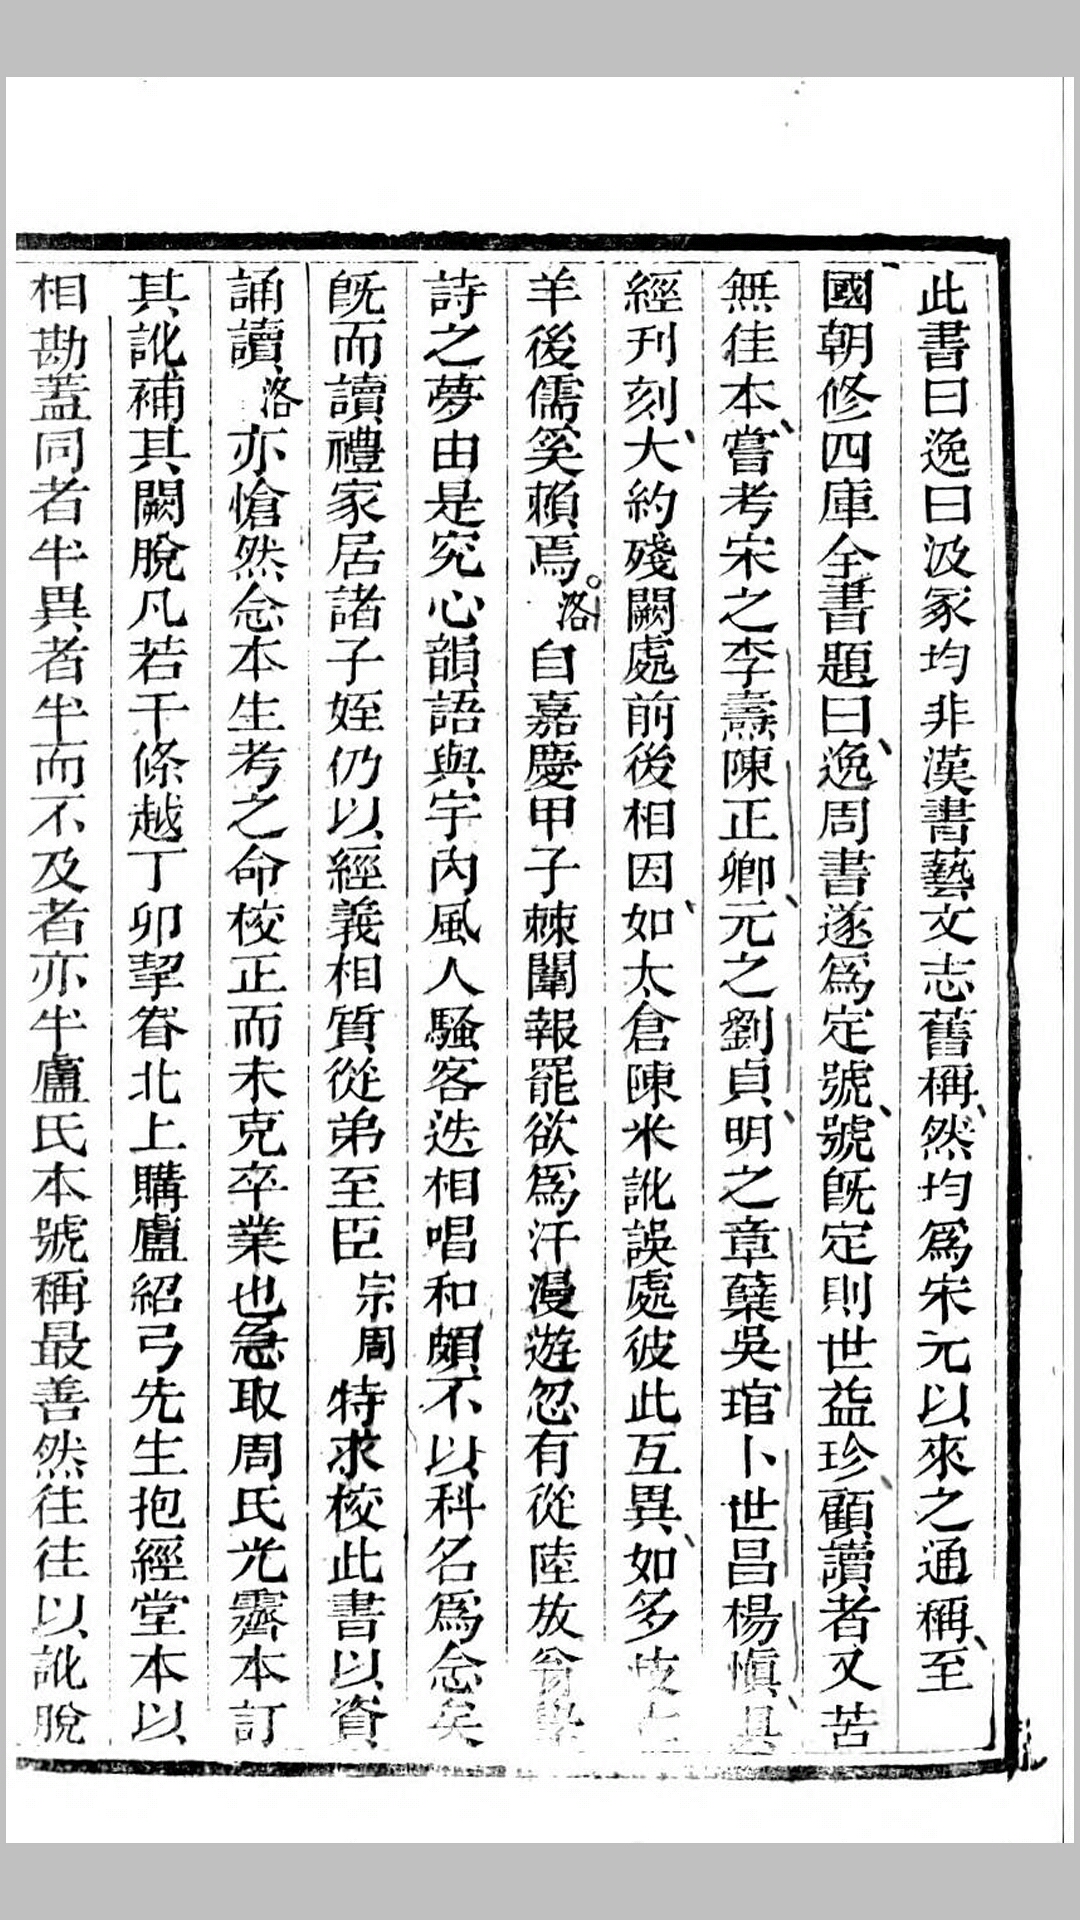 此書曰逸曰汲冢均非漢書藝文志舊稱、然均爲宋元以來之通稱、至
國朝修四庫全書題曰、逸周書遂爲定號、號旣定則世益珍、顧讀者又苦
無佳本、嘗考宋之李燾陳正卿、元之劉貞、明之章蘖吳琯卜世昌楊愼、具
經刊刻、大約殘闕處前後相因、如太倉陳米訛誤處彼此互異、如多岐亡
羊後儒奚賴焉。洛自嘉慶甲子棘闈報罷欲爲汗漫遊忽有從陸放翁學
詩之夢由是究心韻語與宇內風人騷客迭相唱和頗不以科名爲念矣
旣而讀禮家居諸子姪仍以經義相質從弟至臣宗周特求校此書以資
誦讀、洛亦愴然念本生考之命校正而未克卒業也急取周氏光霽本訂
其訛補其闕脫凡若干條越丁卯挈眷北上購盧紹弓先生抱經堂本以
相勘蓋同者半異者半而不及者亦半盧氏本號稱最善然往往以訛脫